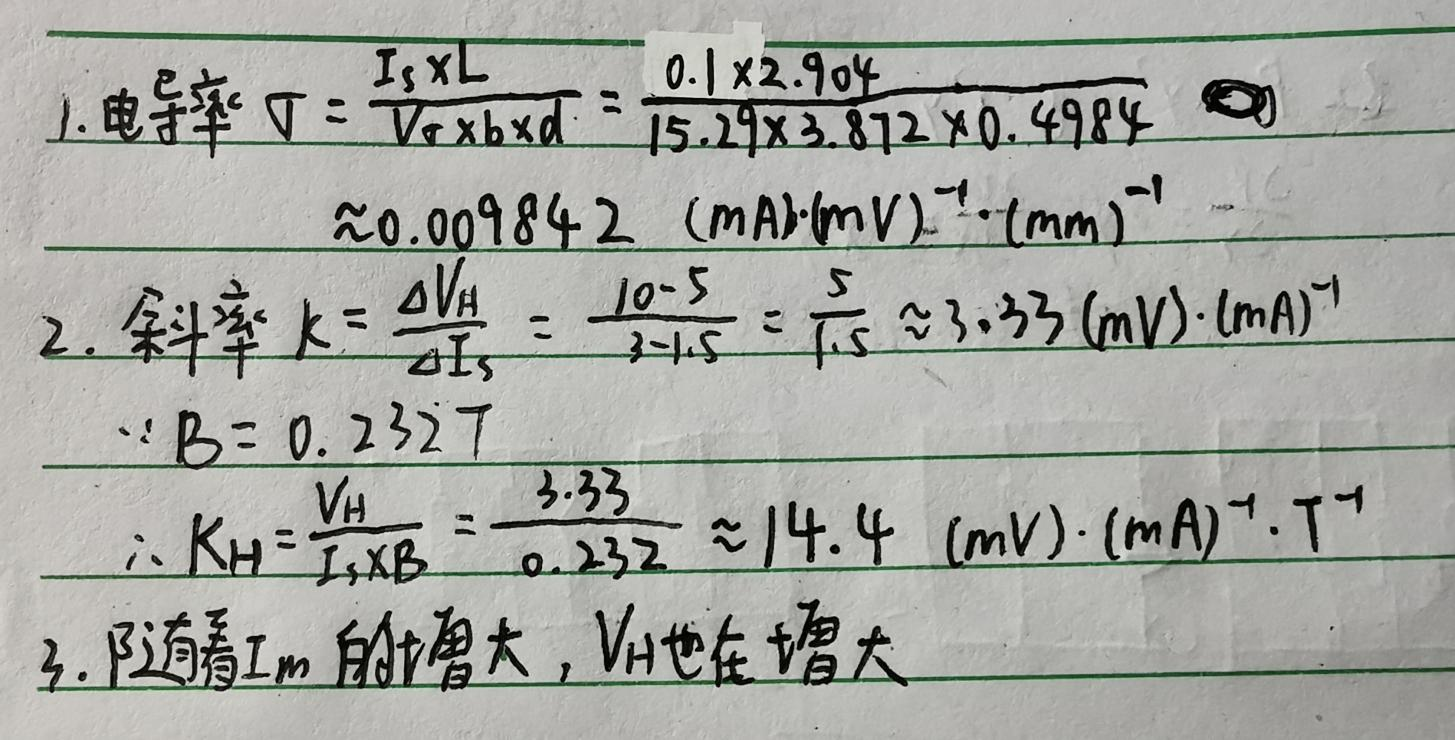 1. 电导率 σ = (Is×L)/(Vσ×b×d) = (0.1×2.904)/(15.29×3.872×0.4984)
≈0.009842 (mA)·(mV)⁻¹·(mm)⁻¹
2. 斜率 k = ΔVH/ΔIs = (10-5)/(3-1.5) = 5/1.5 ≈3.33 (mV)·(mA)⁻¹
∵ B = 0.232T
∴ KH = VH/(Is×B) = 3.33/0.232 ≈14.4 (mV)·(mA)⁻¹·T⁻¹
3. 随着Im 的增大, VH也在增大